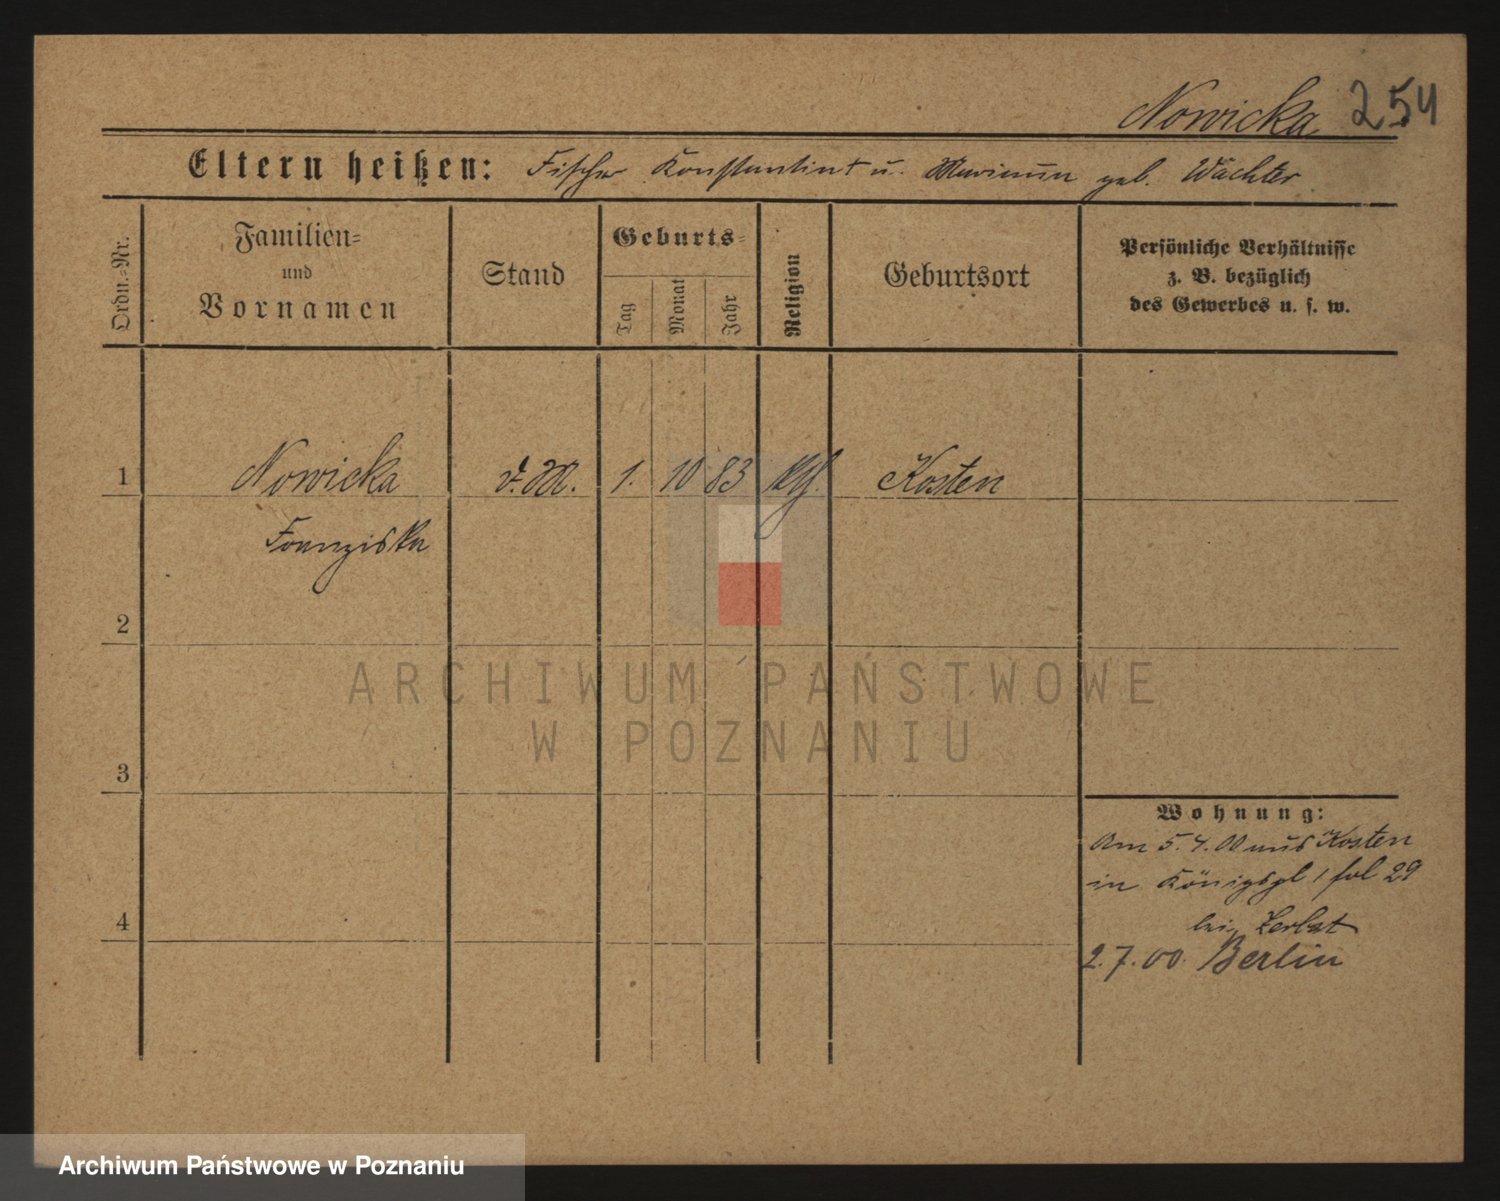 Nowicka 254
Eltern heißen: Fischer Konstantint u. Marianna geb. Wachter
Ordn.-Nr.
Familien- und Vornamen
Stand
Geburts-
Tag
Monat
Jahr
Religion
Geburtsort
Persönliche Verhältnisse
z. B. bezüglich
des Gewerbes u. s. w.
1 Nowicka d. M. 1. 10 83 Kosten
Franziska
2
3
4
Wohnung:
Am 5.4.00 aus Kosten
in Königspl 1 fol 29
bei Zerbst
2.7.00. Berlin
ARCHIWUM PAŃSTWOWE
W POZNANIU
Archiwum Państwowe w Poznaniu